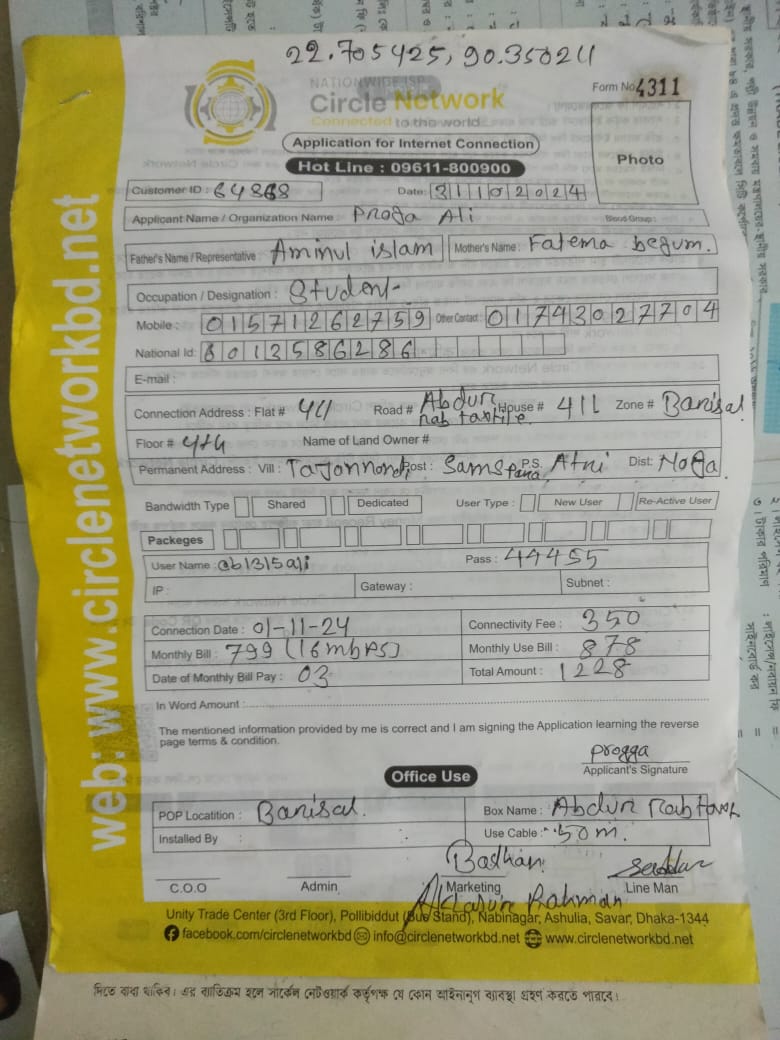 22.705425, 90.35024
NATIONWIDE ISP
Circle Network
Connected to the world
Form No 4311
Application for Internet Connection
Hot Line : 09611-800900
Photo
Customer ID : 64868
Date: 31102024
Applicant Name / Organization Name : Progga Ali
Blood Group :
Father's Name / Representative : Aminul islam
Mother's Name : Fatema begum.
Occupation / Designation : Student
Mobile : 01571262759
Other Contact : 01743027704
National Id: 6013586286
E-mail :
Connection Address : Flat # 4U Road # Abdur rab House # 411 Zone # Barisal
Floor # 4th Name of Land Owner #
Permanent Address : Vill : Post : P.S. Dist:
Bandwidth Type Shared Dedicated User Type : New User Re-Active User
Packeges
User Name : cb1315ali Pass : 44455
IP : Gateway : Subnet :
Connection Date : 01-11-24 Connectivity Fee : 350
Monthly Bill : 799 (16mbps) Monthly Use Bill : 878
Date of Monthly Bill Pay : 03 Total Amount : 1228
In Word Amount :
The mentioned information provided by me is correct and I am signing the Application learning the reverse
page terms & condition.
Progga
Applicant's Signature
Office Use
POP Locatition : Barisal. Box Name : Abdur Rab
Installed By : Use Cable : 50m.
Badhan
C.O.O Admin Marketing Line Man
Rahman
Unity Trade Center (3rd Floor), Pollibiddut (Bus Stand), Nabinagar, Ashulia, Savar, Dhaka-1344
facebook.com/circlenetworkbd info@circlenetworkbd.net www.circlenetworkbd.net
web: www.circlenetworkbd.net
দিতে বাধ্য থাকিব। এর ব্যতিক্রম হলে সার্কেল নেটওয়ার্ক কর্তৃপক্ষ যে কোন আইনানুগ ব্যবস্থা গ্রহণ করতে পারবে।